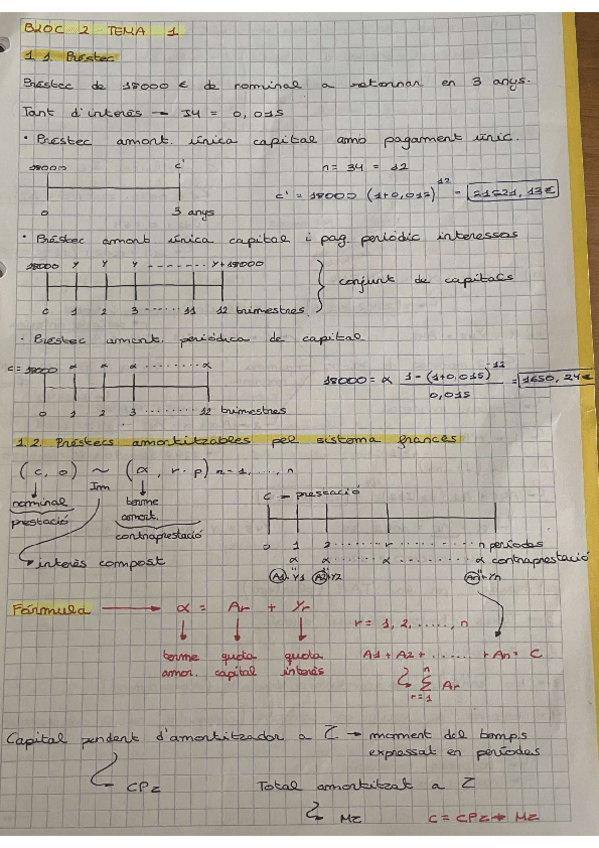 BLOC 2 TEMA 1
1.1. Préstec
Préstec de 18000 € de nominal a retornar en 3 anys.
Tant d'interès → I4 = 0,015
· Préstec amort. única capital amb pagament únic.
18000 C'
0 3 anys
n = 3·4 = 12
C' = 18000 (1+0,015)^12 = 21521,13€
· Préstec amort única capital i pag. periòdic interessos
18000 Y Y Y -------- Y+18000
0 1 2 3 ...... 11 12 trimestres
conjunt de capitals
· Préstec amort. periòdica de capital
C = 18000 α α α ......... α
0 1 2 3 ......... 12 trimestres
18000 = α 1-(1+0,015)^-12 / 0,015 = 1650,24€
1.2. Préstecs amortitzables pel sistema francès
(C, 0) ~ (α, r·p) r=1,...,n
Im
nominal
prestació
terme
amort.
contraprestació
interès compost
C → prestació
0 1 2 ......... r ......... n períodes
α α ......... α contraprestació
A1+Y1 A2+Y2 An+Yn
Fórmula → α = Ar + Yr
r = 1, 2, ....., n
terme amor. quota capital quota interès
A1 + A2 + ...... + An = C
n Σ r=1 Ar
Capital pendent d'amortitzador a Z → moment del temps
expressat en períodes
CPz
Total amortitzat a Z
Mz
C = CPz + Mz